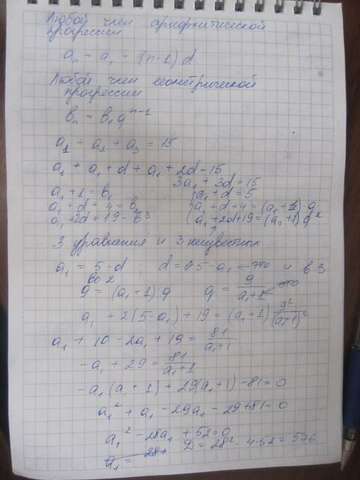 Любой член арифметической
прогрессии
aₙ = a₁ + (n-1)d
Любой член геометрической
прогрессии
bₙ = b₁qⁿ⁻¹
a₁ + a₂ + a₃ = 15
a₁ + a₁ + d + a₁ + 2d = 15
3a₁ + 3d = 15
a₁ + 1 = b₁ a₁ + d = 5
a₁ + d + 4 = b₂ a₁ + d + 4 = (a₁ + 1) q
a₁ + 2d + 19 = b₃ a₁ + 2d + 19 = (a₁ + 1) q²
3 уравнения и 3 неизвестных
a₁ = 5 - d d = 5 - a₁ в 3
во 2
9 = (a₁ + 1) q q = 9/(a₁ + 1)
a₁ + 2(5 - a₁) + 19 = (a₁ + 1) 9²/(a₁ + 1)²
a₁ + 10 - 2a₁ + 19 = 81/(a₁ + 1)
-a₁ + 29 = 81/(a₁ + 1)
-a₁(a + 1) + 29(a₁ + 1) - 81 = 0
a₁² + a₁ - 29a₁ - 29 + 81 = 0
a₁² - 28a₁ + 52 = 0
D = 28² - 4·52 = 576